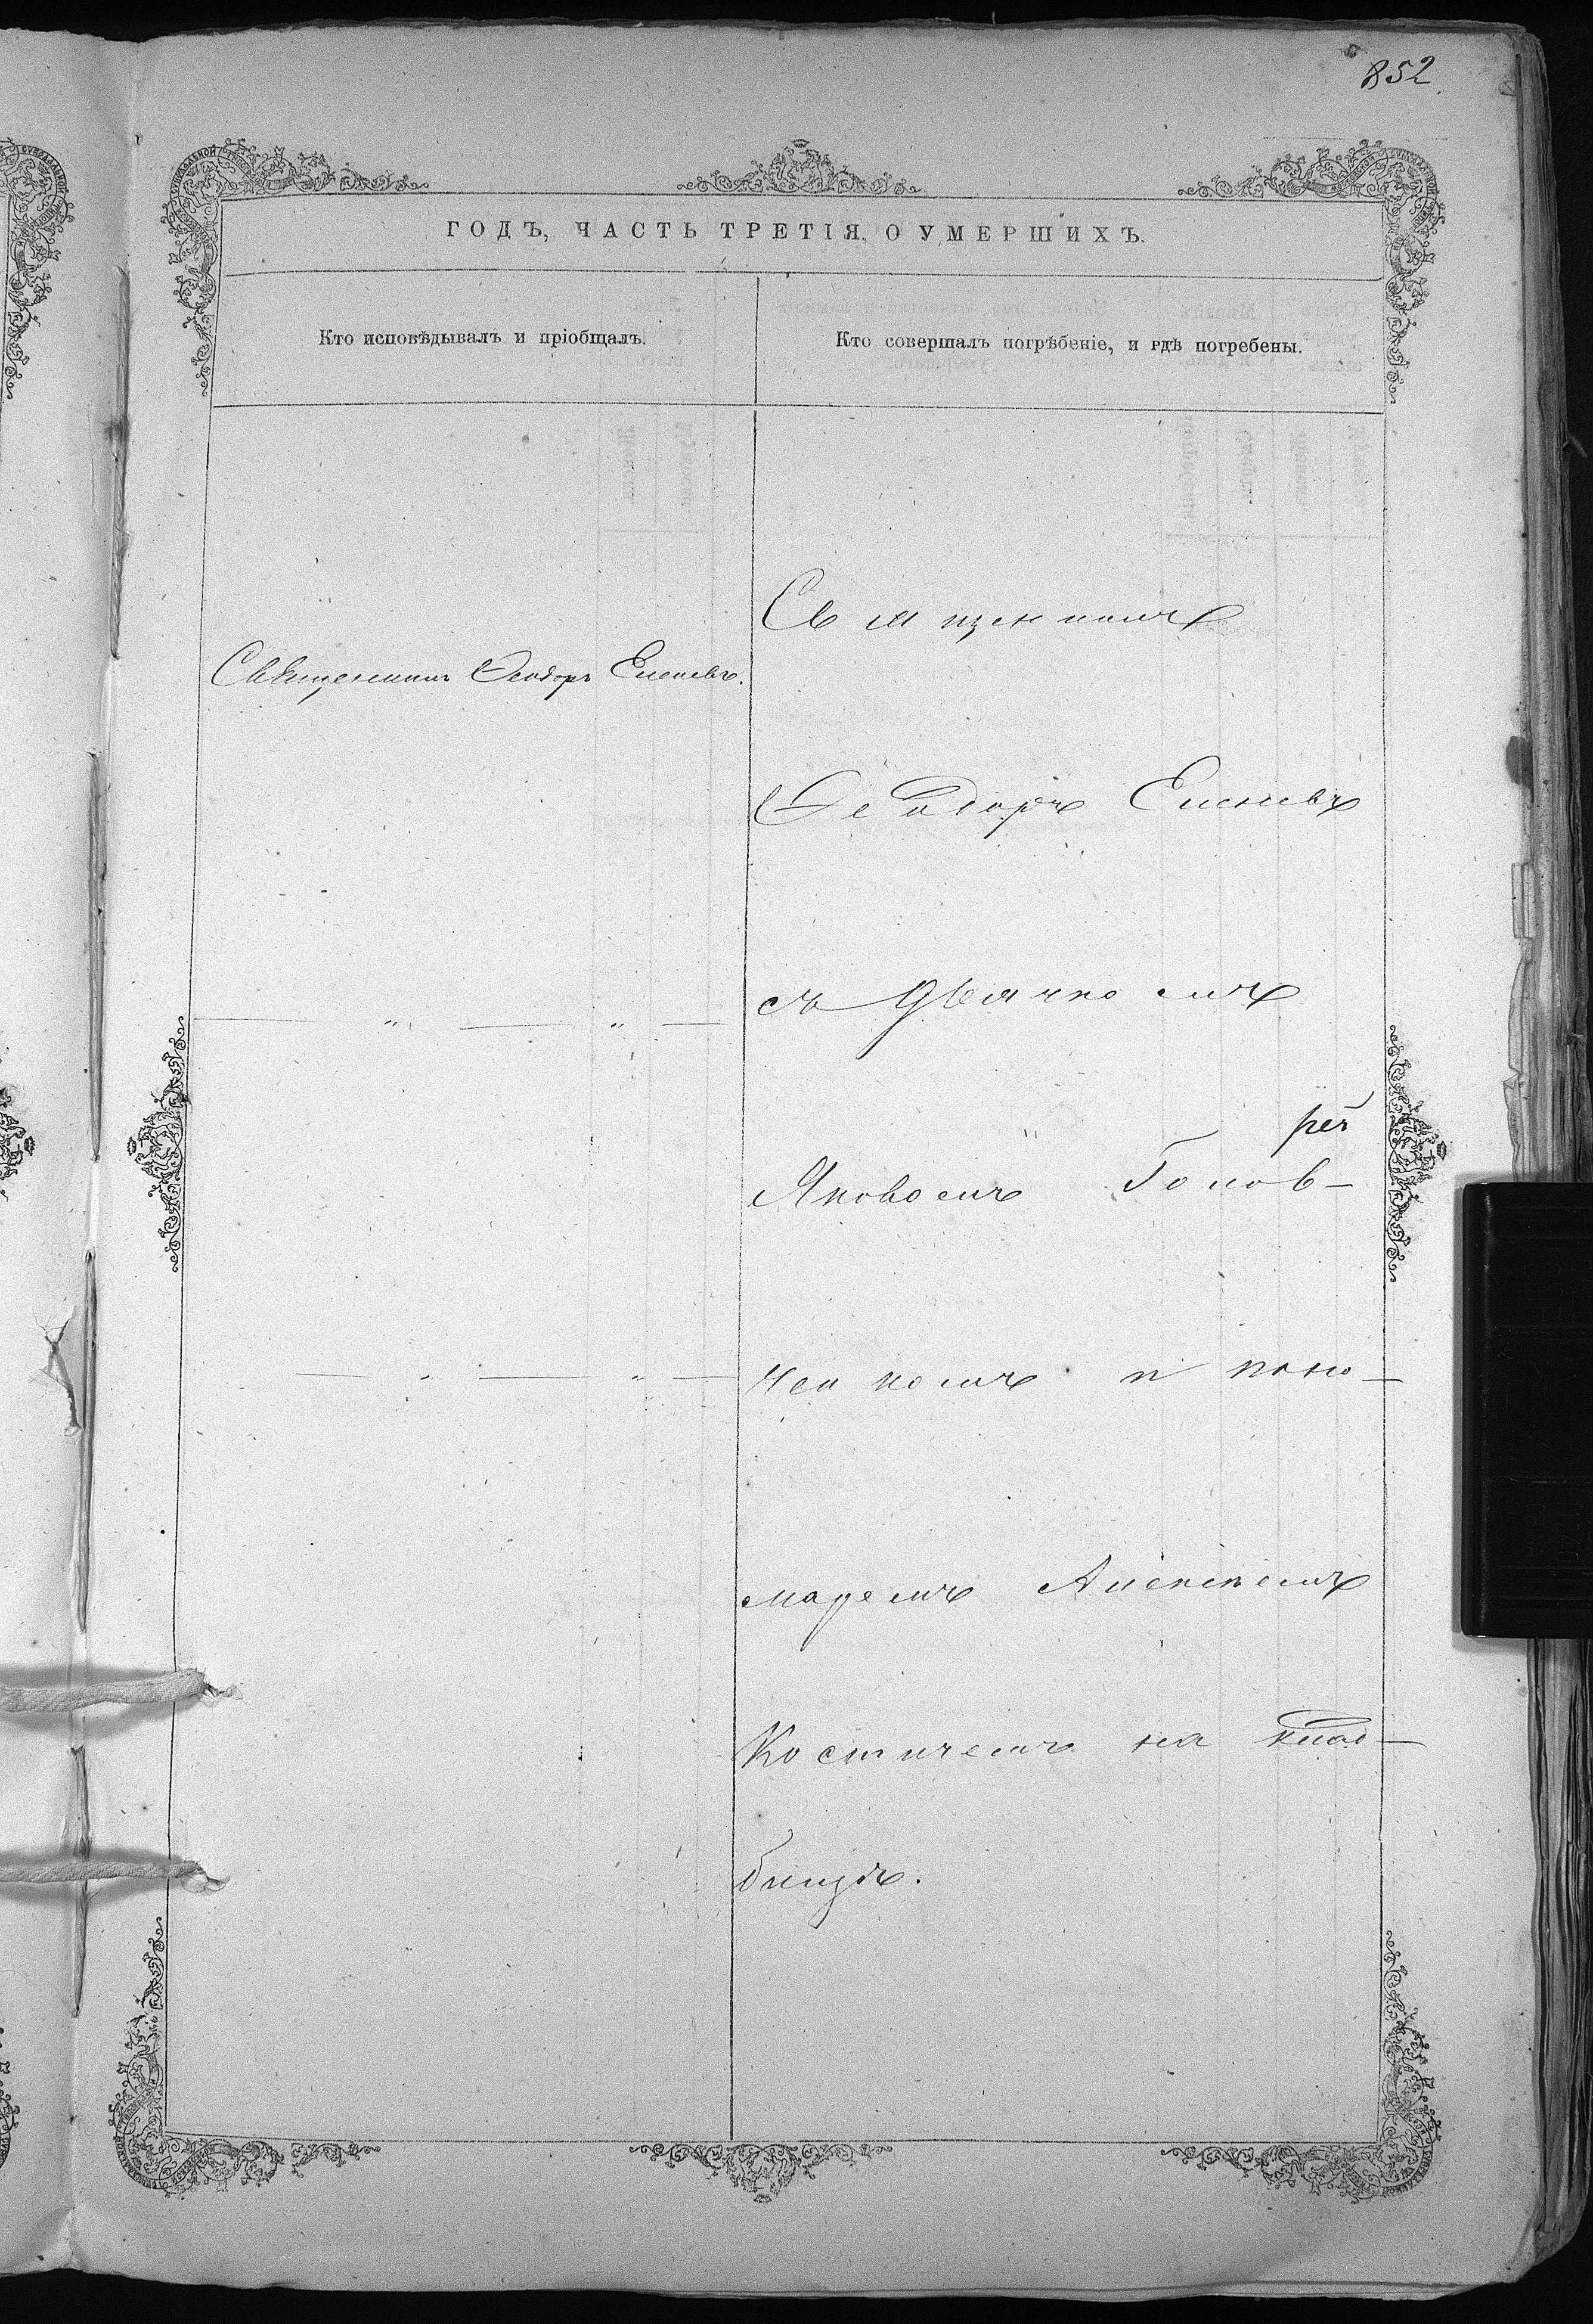 852
ГОДЪ, ЧАСТЬ ТРЕТІЯ, О УМЕРШИХЪ.
Кто исповѣдывалъ и пріобщалъ.
Кто совершалъ погрѣбеніе, и гдѣ погребены.
Священникъ Ѳеодоръ Еленевъ.
Священникъ
Ѳеодоръ Еленевъ
съ дьячкомъ
Яковомъ
ченкомъ и поно-
маремъ Алексѣемъ
Костичемъ на клад-
бищѣ.